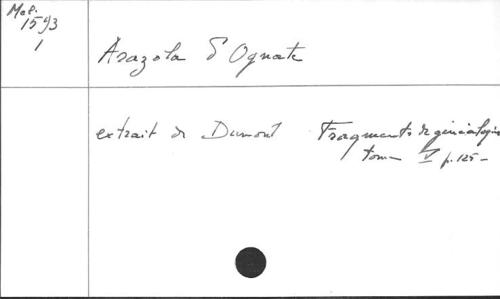 Mél.
1593
1
Arazola d'Ognate
extrait de Dumont Fragments de généalogies
tome V p. 125 -